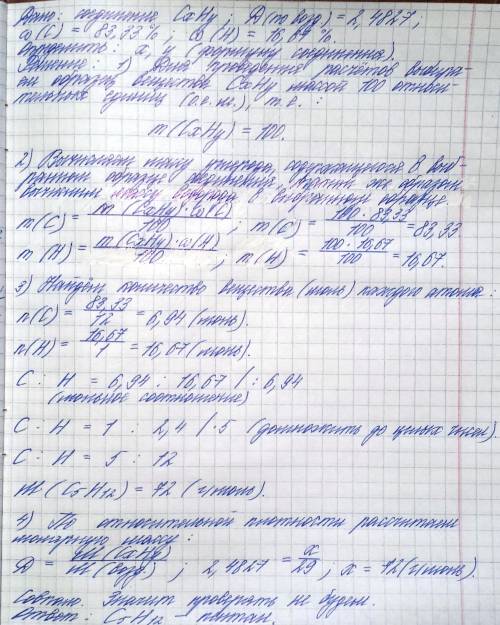 Дано: соединение CxHy; D(по возд) = 2,4827;
ω(C) = 83,33%; ω(H) = 16,67%.
Определить: x, y (формулу соединения).
Решение: 1) Для проведения расчётов выбира-
ем образец вещества CxHy массой 100 относи-
тельных единиц (о.е.м.), т.е.:
m(CxHy) = 100.
2) Вычисляем массу углерода, содержащегося в выб-
ранном образце соединения. Таким же образом
вычислим массу водорода в выбранном образце.
m(C) = m(CxHy)·ω(C) / 100 ; m(C) = 100·83,33 / 100 = 83,33
m(H) = m(CxHy)·ω(H) / 100 ; m(H) = 100·16,67 / 100 = 16,67.
3) Найдём количества вещества (моль) каждого атома:
n(C) = 83,33 / 12 = 6,94 (моль).
n(H) = 16,67 / 1 = 16,67 (моль).
C : H = 6,94 : 16,67 / : 6,94
(мольное соотношение)
C : H = 1 : 2,4 /·5 (домножить до целых чисел).
C : H = 5 : 12
M(C5H12) = 72 (г/моль).
4) По относительной плотности рассчитаем
молярную массу:
D = M(CxHy) / M(возд) ; 2,4827 = x / 29 ; x = 72 (г/моль).
Совпало. Значит проверять не будем.
Ответ: C5H12 - пентан.